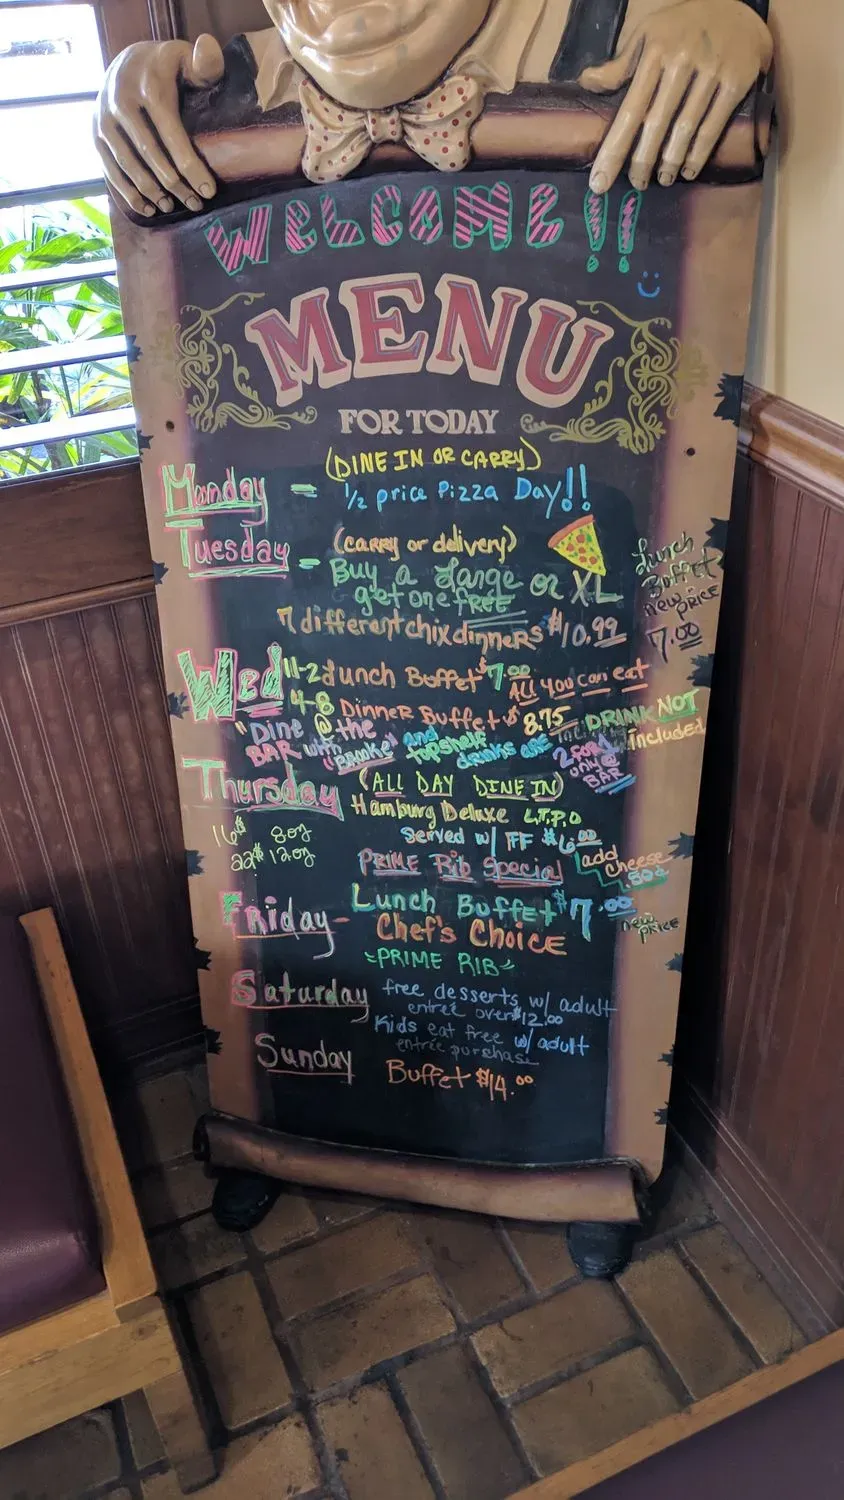 WeLCOMe!!
MENU
FOR TODAY
(DINE IN OR CARRY)
Monday = 1/2 price Pizza Day!!
Tuesday = (CARRY or delivery)
Buy a Large or XL
get one FREE
7 different chix dinners $10.99
Lunch
Buffet
new PRICE
7.00
Wed 11-2 Lunch Buffet $7.00 ALL YOU Can eat
4-8 Dinner Buffet $8.75 DRINK NOT
included
"Dine @ the
BAR with "BROOKE" and
topshelf
drinks ARE
2 FOR 1
only @
BAR
Thursday (ALL DAY DINE IN)
Hamburg Deluxe L,T,P,O
Served w/ FF $6.00
add
cheese
.50¢
16$ 8oz
22$ 12oz
PRIME Rib Special
Friday - Lunch Buffet $7.00
new
PRICE
Chef's Choice
~PRIME RIB~
Saturday free desserts w/ adult
entrée over $12.00
Kids eat free w/ adult
entrée purchase
Sunday Buffet $14.00